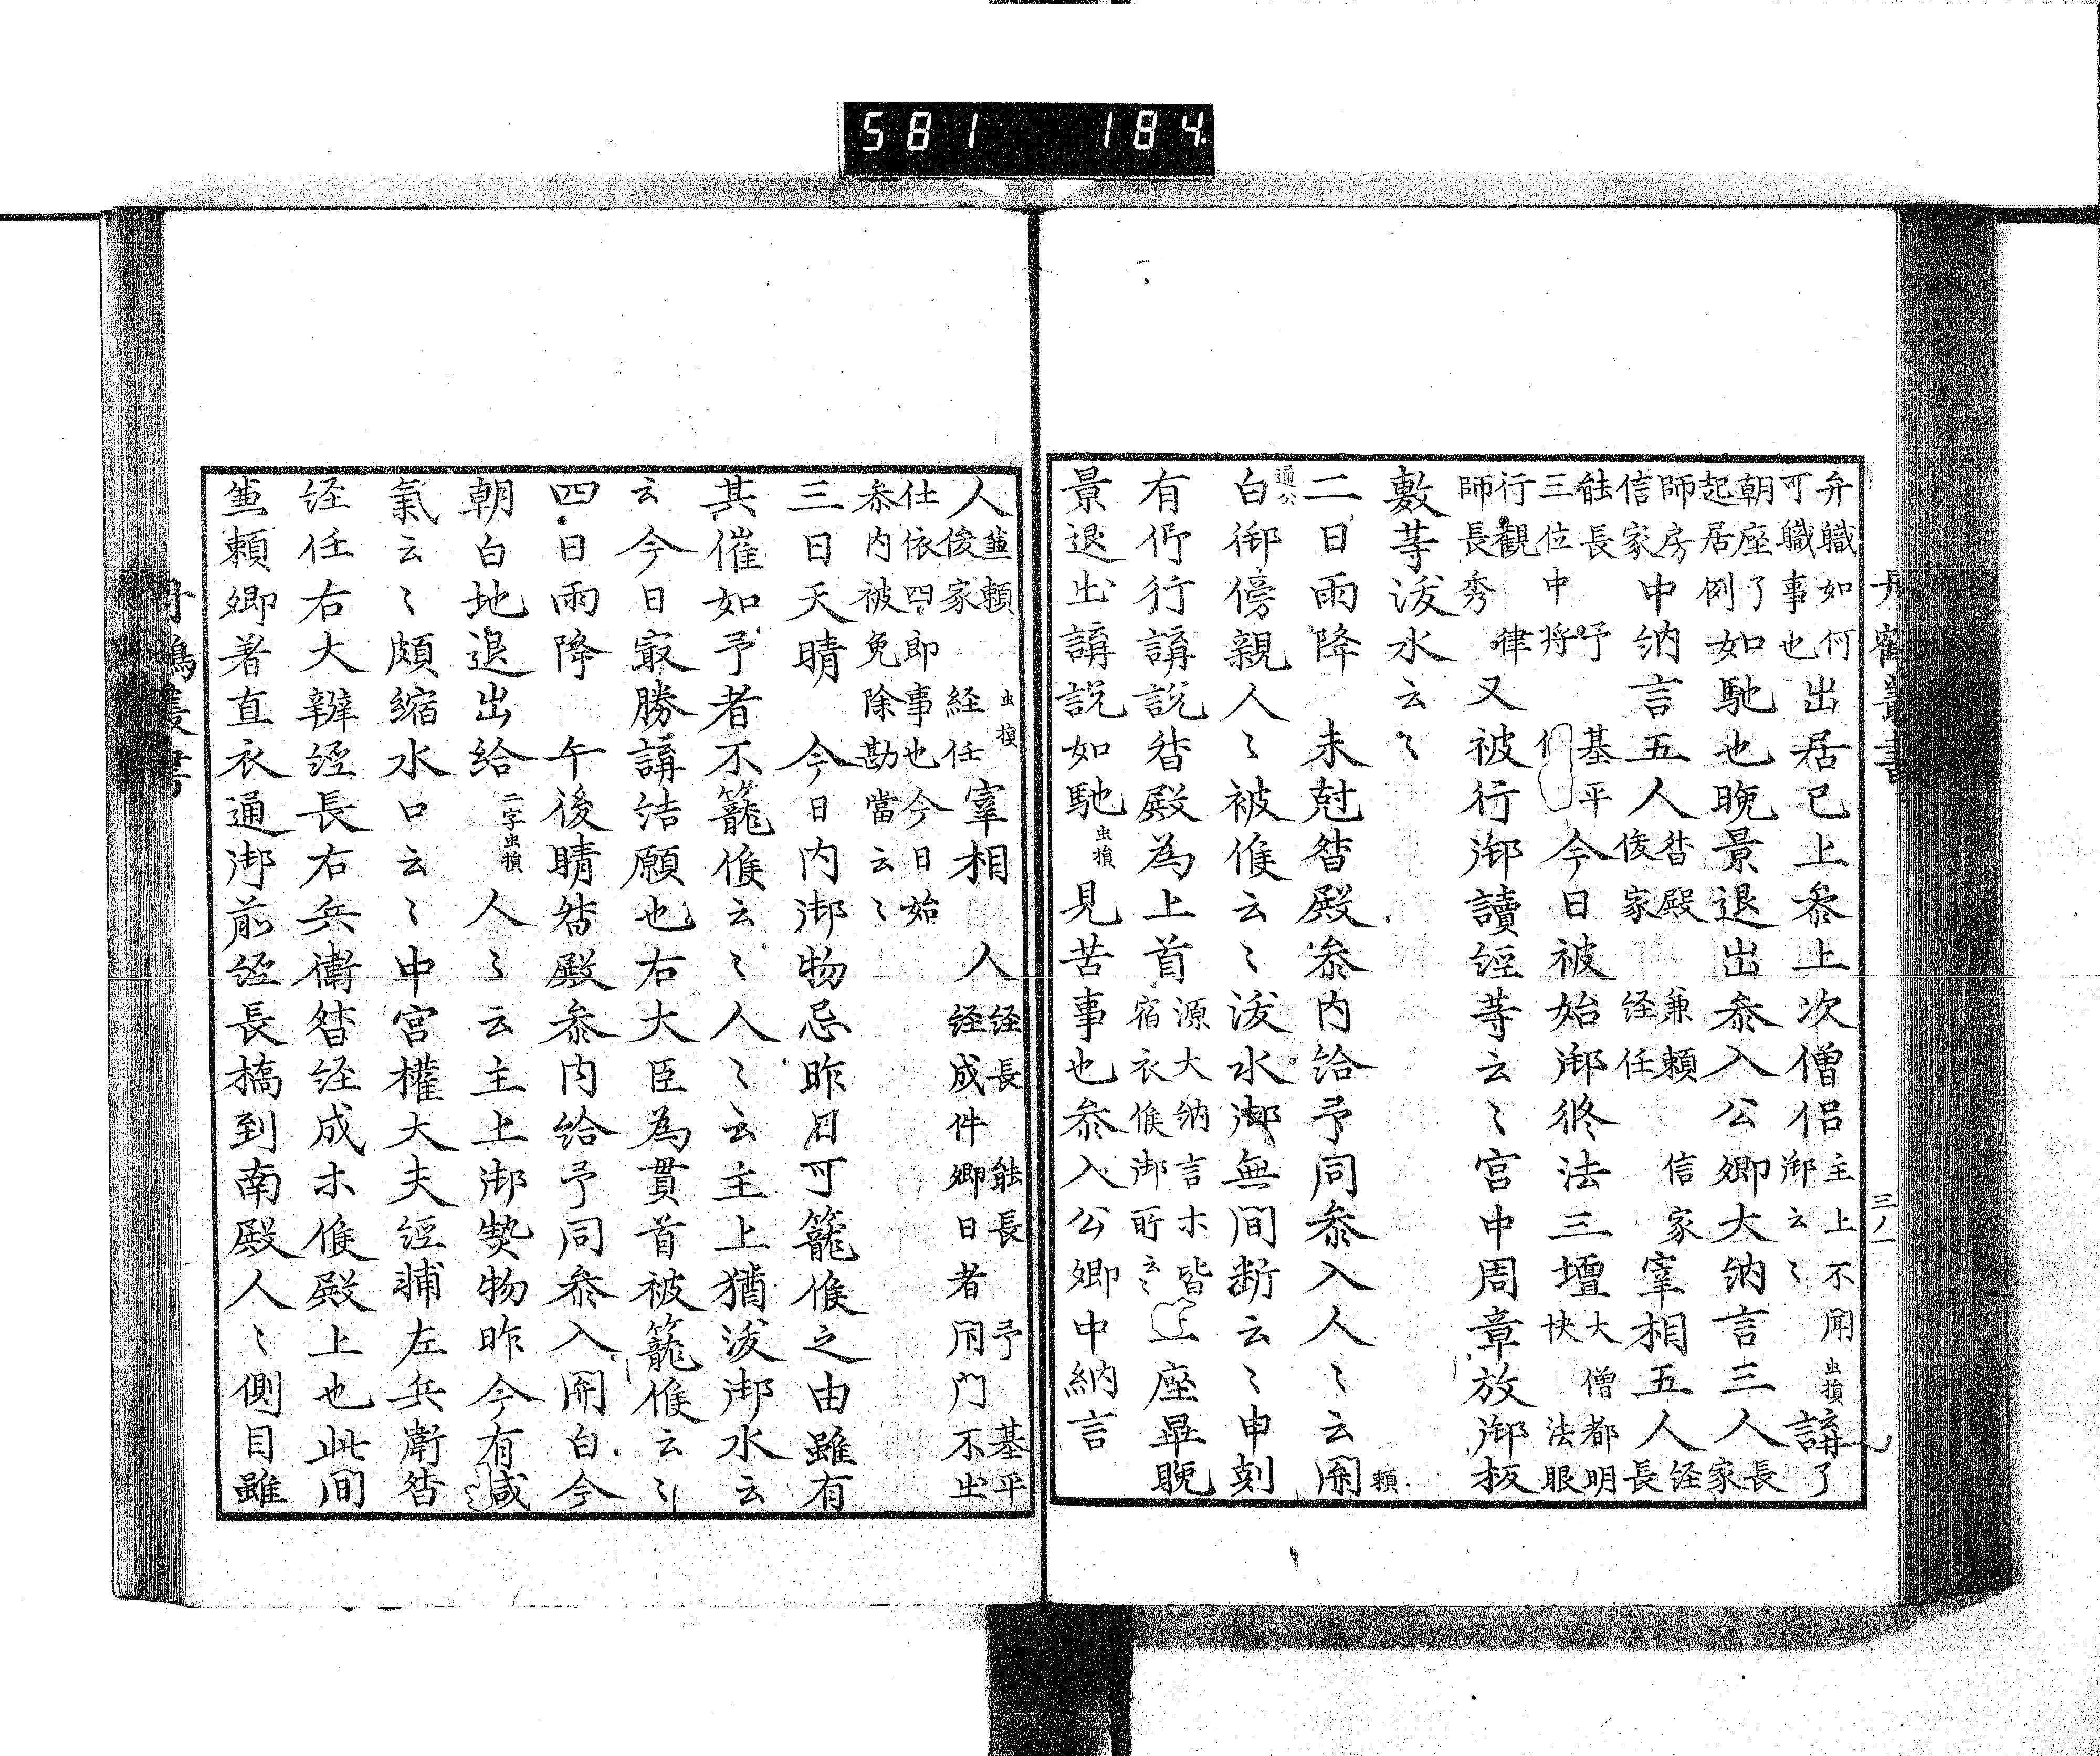 581 184
弁職如何
可職事也
出居已上参上次僧侶
主上不聞
御云〻
虫損
講了
朝座了
起居例
如馳也晩景退出参入公卿大納言三人
長
家
師房
信家
中納言五人
呇殿
俊家
兼頼
経任
信家
宰相五人
経
長
能長 予
三位中将
基平
今日被始御修法三壇
大僧都明
快 法眼
行観 律
師長秀
又被行御讀経等云〻宮中周章放御板
敷等波水云〻
二日雨降 未尅呇殿参内給予同参入人〻云関
頼
通公
白御傍親人〻被候云〻波水御無間断云〻申刻
有御行講説呇殿為上首
源大納言木皆
宿衣候御所云〻
上座畢晩
景退出講説如馳
虫損
見苦事也参入公卿中納言
人
兼頼
俊家
虫損
経任
宰相 人
経長 能長 予 基平
経成件卿日者閇門不出
仕依四即事也今日始
参内被免除勘當云〻
三日天晴 今日内御物忌昨日可籠候之由雖有
其催如予者不籠候云〻人〻云主上猶波御水云
云今日㝡勝講結願也右大臣為貫首被籠候云〻
四日雨降 午後晴呇殿参内給予同参入関白今
朝白地退出給
二字虫損
人〻云主上御㔟物昨今有減
氣云〻頗縮水口云〻中宮權大夫経輔左兵衛呇
経任右大辨経長右兵衛呇経成木候殿上也此間
兼頼卿著直衣通御前経長撟到南殿人〻側目雖
丹鶴叢書